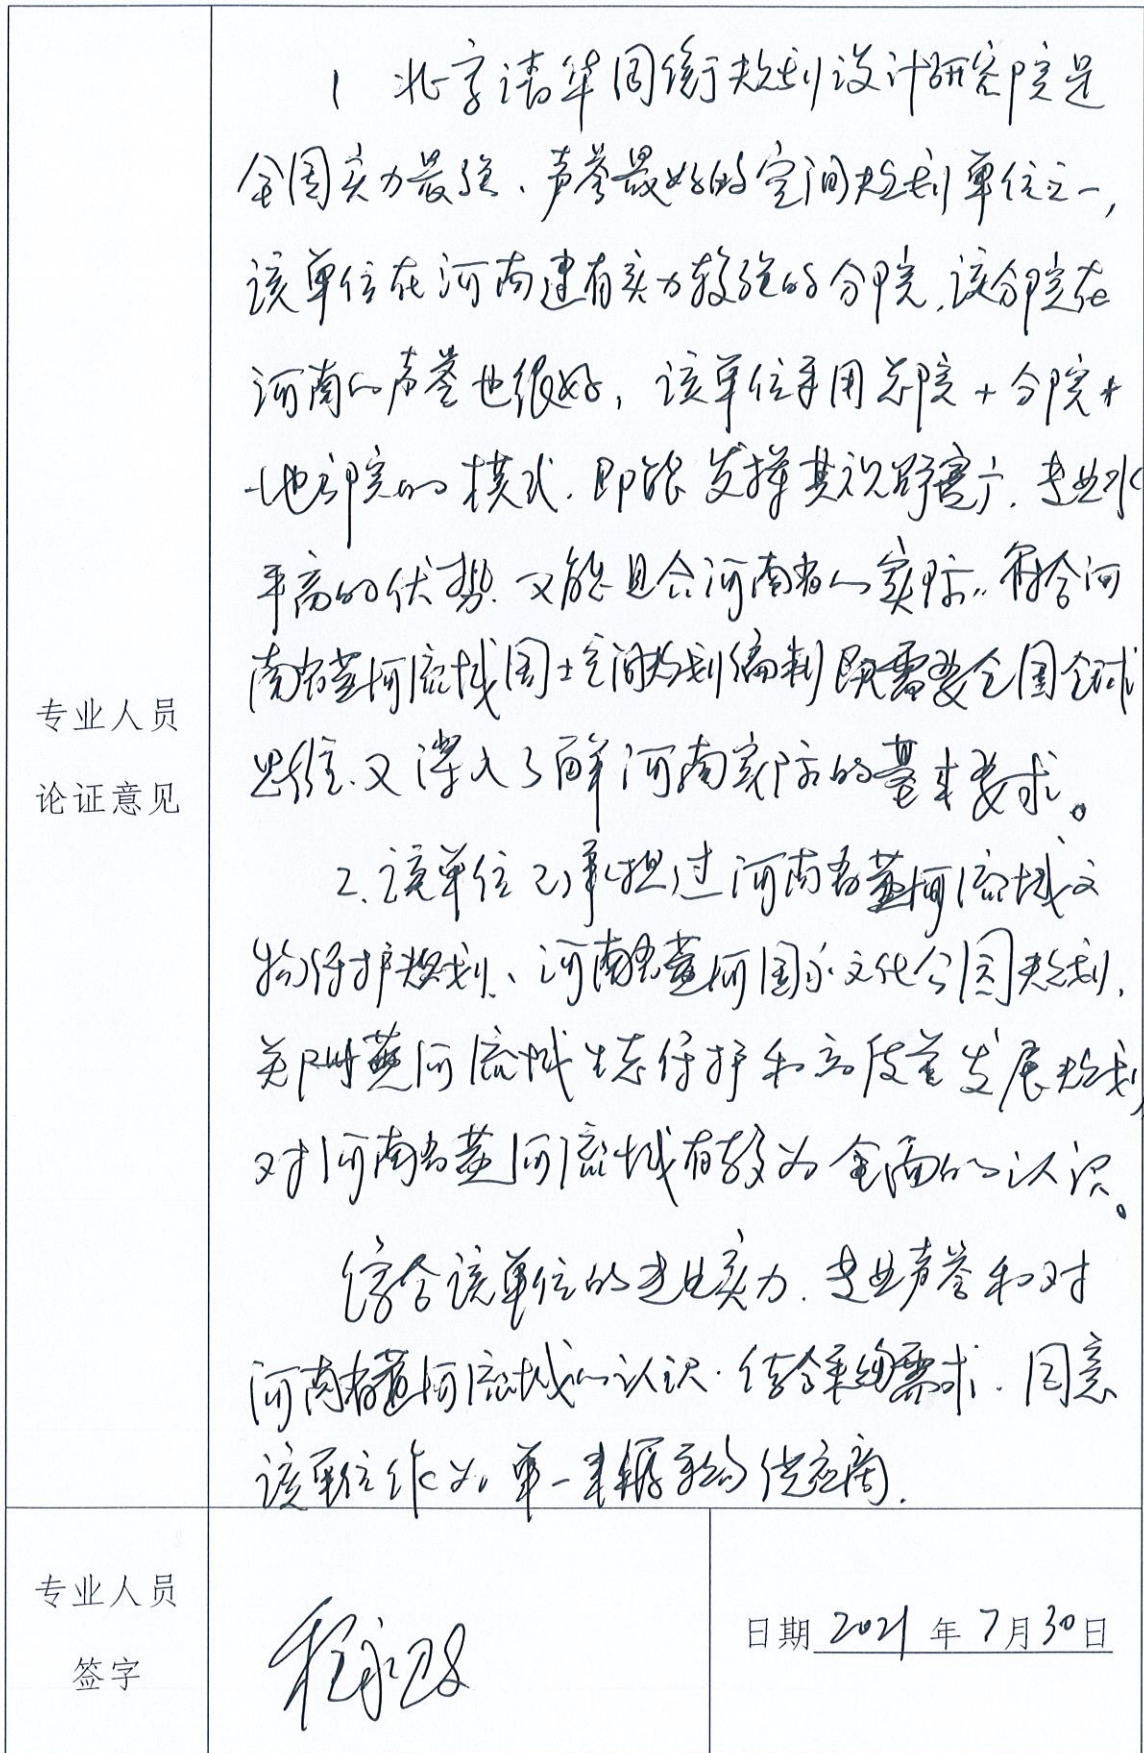 1 北京清华同衡规划设计研究院是
全国实力最强、声誉最好的空间规划单位之一,
该单位在河南建有实力较强的分院,该分院在
河南的声誉也很好,该单位采用总院+分院+
地方院的模式,即能发挥其视野宽广、专业水
平高的优势、又能且合河南省的实际,符合河
南省黄河流域国土空间规划编制既需要全国全球
思维、又深入了解河南实际的基本要求。
2、该单位已承担过河南省黄河流域文
物保护规划、河南省黄河国家文化公园规划,
黄河流域生态保护和高质量发展规划,
对河南省黄河流域有较为全面的认识。
综合该单位的专业实力、专业声誉和对
河南省黄河流域的认识,结合采购需求,同意
该单位作为单一来源采购供应商.
专业人员
论证意见
专业人员
签字
日期 2021 年 7 月 30 日